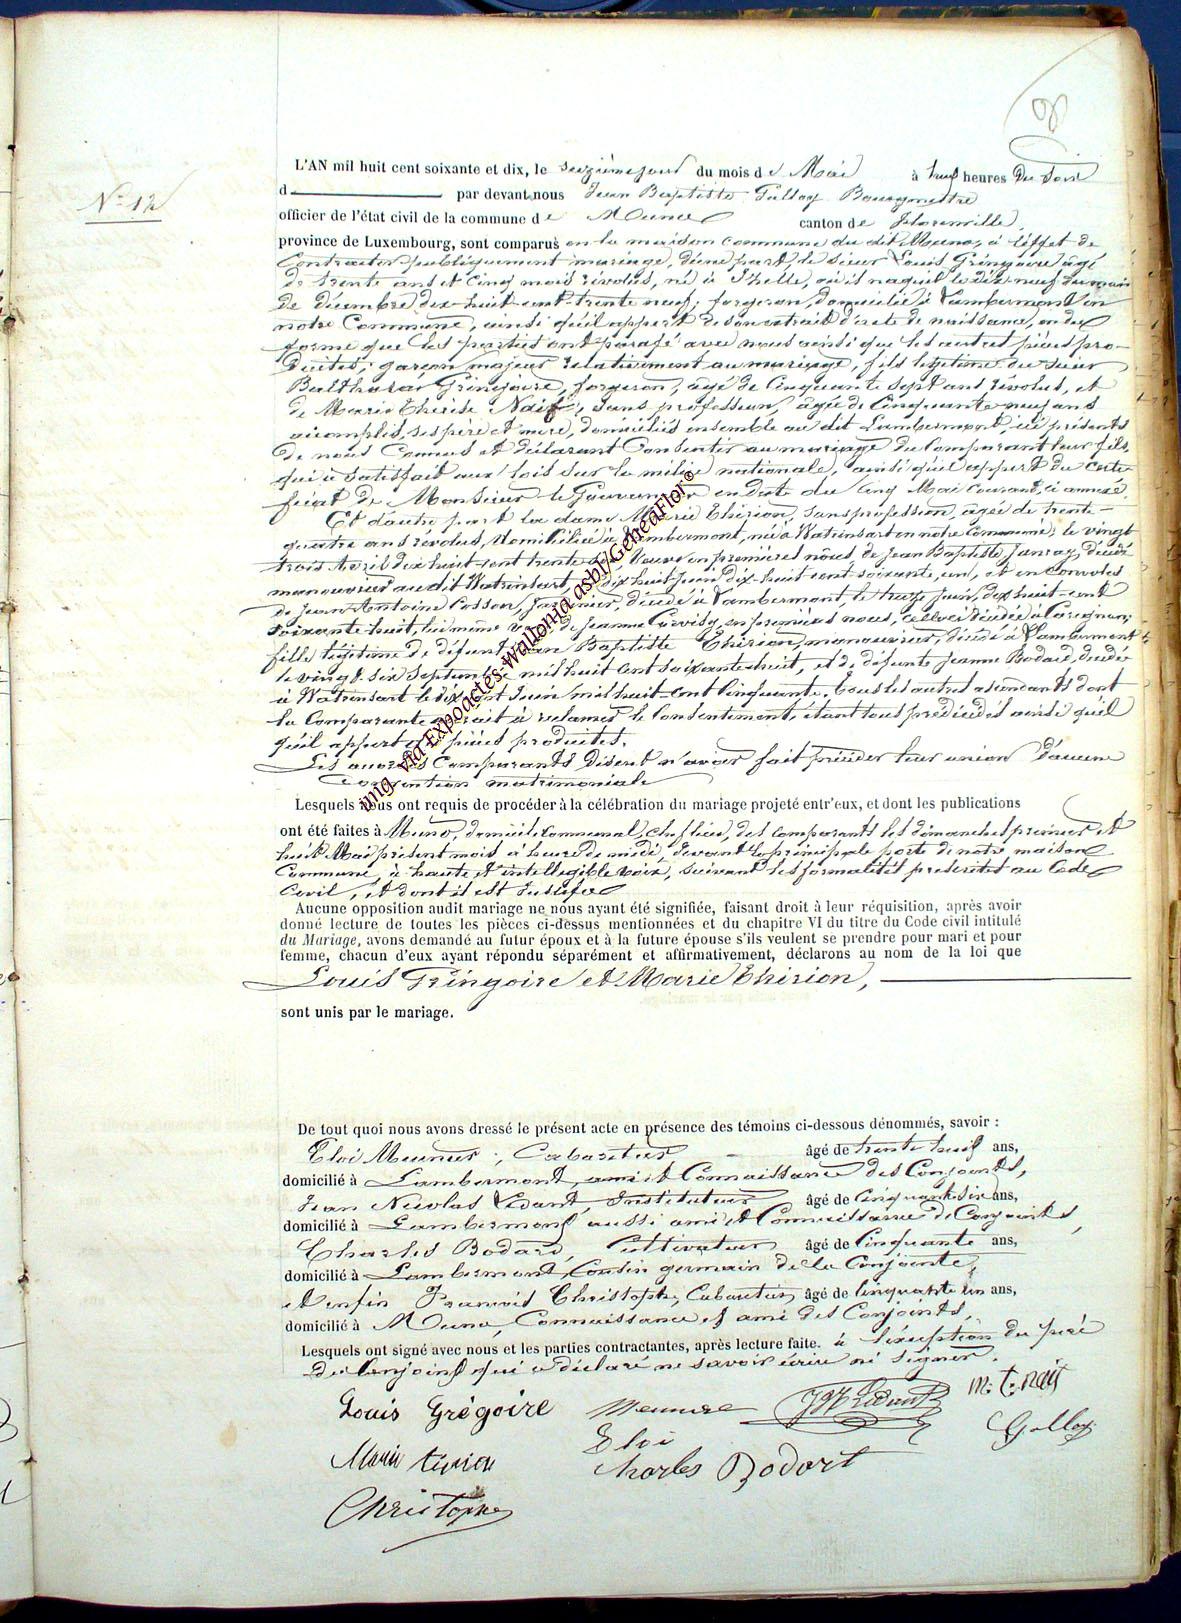 8
N° 12
L'AN mil huit cent soixante et dix, le seizième jour du mois de Mai à huit heures du soir
d par devant nous Jean Baptiste Galloy Bourgmestre
officier de l'état civil de la commune de Muno canton de Florenville,
province de Luxembourg, sont comparus en la maison commune du dit Muno, à l'effet de
contracter publiquement mariage, d'une part le sieur Louis Gringoire âgé
de trente ans et cinq mois révolus, né à Thelle, où il naquit le dix neuf du mois
de décembre dix-huit-cent-trente neuf; forgeron, domicilié à Lambermont en
notre Commune, ainsi qu'il appert de son extrait d'acte de naissance, en due
forme que les parties ont parafé avec nous ainsi que les autres pièces pro-
duites; garçon majeur relativement au mariage, fils légitime du sieur
Balthazar Gringoire, forgeron, âgé de cinquante sept ans révolus, et
de Marie Thérèse Naif, sans profession, âgée de cinquante neuf ans
accomplis, ses père et mère, domiciliés ensemble au dit Lambermont, ici présents
de nous connus et déclarant consentir au mariage du comparant leur fils,
qui a satisfait aux lois sur la milice nationale, ainsi qu'il appert du certi-
ficat de Monsieur le Gouverneur en date du cinq Mai courant, ci annexé.
Et d'autre part la dame Marie Thirion, sans profession, âgée de trente-
quatre ans révolus, domiciliée à Lambermont, née à Watrinsart en notre Commune, le vingt
trois Avril dix huit-cent trente Veuve en premières nôces de Jean Baptiste Jansay, décédé
manouvrier au dit Watrinsart, dix huit Juin dix-huit-cent-soixante, un, et en convoles
de Jean Antoine Cosson, décédé à Lambermont, le treize Juin, dix huit-cent
soixante huit, lui même de Jeanne en premières noces, celle-ci décédée à Carignan,
fille légitime de défunt Jean Baptiste Thirion, manouvrier, décédé à Lambermont
le vingt-six Septembre mil huit cent soixante huit, et de défunte Jeanne Bodard, décédée
à Watrinsart le dix Juin mil huit-cent cinquante. Tous les autres ascendants dont
la comparante aurait à réclamer le consentement, étant tous prédécédés ainsi qu'il
qu'il appert des pièces produites.
Les susdits comparants disent n'avoir fait précéder leur union d'aucune
convention matrimoniale
Lesquels nous ont requis de procéder à la célébration du mariage projeté entr'eux, et dont les publications
ont été faites à Muno, domicile communal, chef lieu, des comparants les dimanches premier et
huit Mai présent mois à heure de midi, devant la principale porte de notre maison
Commune, à haute et intelligible voix, suivant les formalités prescrites au Code
Civil, et dont il est justifié
Aucune opposition audit mariage ne nous ayant été signifiée, faisant droit à leur réquisition, après avoir
donné lecture de toutes les pièces ci-dessus mentionnées et du chapitre VI du titre du Code civil intitulé
du Mariage, avons demandé au futur époux et à la future épouse s'ils veulent se prendre pour mari et pour
femme, chacun d'eux ayant répondu séparément et affirmativement, déclarons au nom de la loi que
Louis Gringoire et Marie Thirion,
sont unis par le mariage.
De tout quoi nous avons dressé le présent acte en présence des témoins ci-dessous dénommés, savoir :
Eloi Meunier, Cabaretier âgé de trente huit ans,
domicilié à Lambermont, ami et Connaissance des Conjoints,
Jean Nicolas Ledant, Instituteur âgé de cinquante six ans,
domicilié à Lambermont aussi ami et Connaissance de Conjoints,
Charles Bodard, Cultivateur âgé de cinquante ans,
domicilié à Lambermont, Cousin germain de la Conjointe,
et enfin François Christophe, Cabaretier, âgé de cinquante un ans,
domicilié à Muno, Connaissance et ami des Conjoints,
Lesquels ont signé avec nous et les parties contractantes, après lecture faite. à l'exception du père
du Conjoint qui a déclaré ne savoir écrire ni signer.
Louis Grégoire
Meunier
Eloi
JN Ledant
M. T. Naif
Galloy
Marie tirion
Charles Bodart
Christophe
img. via Expoactes-Wallonia asbl/GeneaFlor©